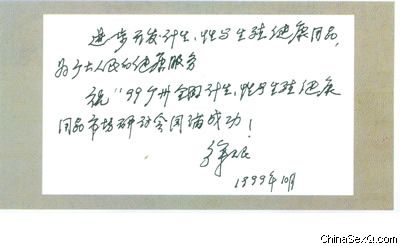 进步开发计生、性与生殖健康用品,
为广大人民的健康服务
祝"99广州全国计生、性与生殖健康
用品市场研讨会圆满成功!
1999年10月
ChinaSexQ.com